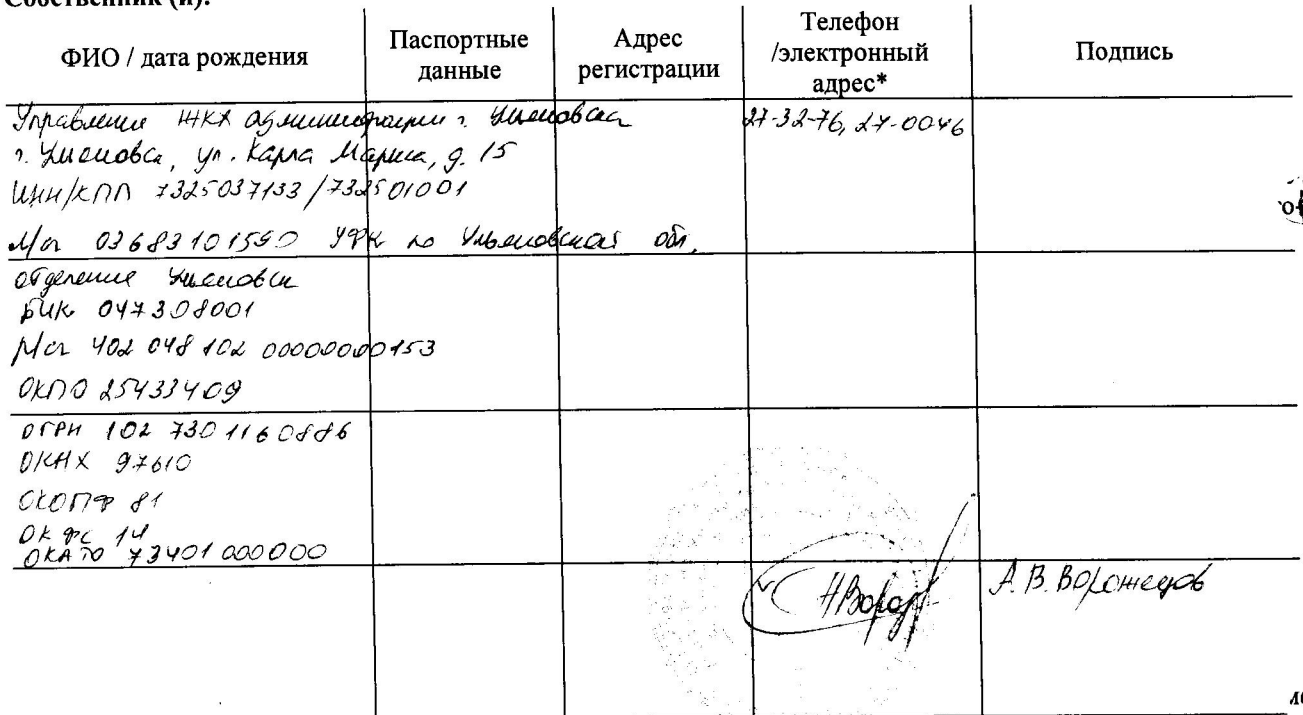 Собственник (и):
ФИО / дата рождения
Паспортные данные
Адрес регистрации
Телефон /электронный адрес*
Подпись
Управление ЖКХ администрации г. Ульяновска
27-32-76, 27-0046
г. Ульяновск, ул. Карла Маркса, д. 15
ИНН/КПП 7325037133/732501001
Л/сч 03683101590 УФК по Ульяновской обл.
отделение Ульяновск
БИК 047308001
Р/сч 402 048 102 00000000153
ОКПО 25433409
ОГРН 102 730 1160886
ОКНХ 97610
ОКОПФ 81
ОКФС 14
ОКАТО 73401 000000
А.В. Ворожецов